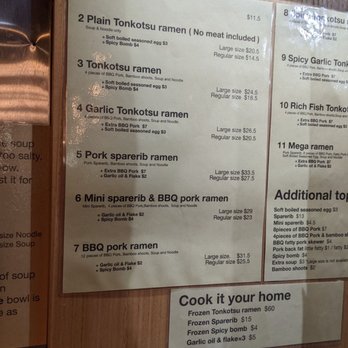 2 Plain Tonkotsu ramen ( No meat included )
$11.5
Soup & Noodle only
• Soft boiled seasoned egg $3
• Spicy Bomb $4
Large size $20.5
Regular size $14.5
3 Tonkotsu ramen
4 pieces of BBQ Pork, Bamboo shoots, Soup and Noodle
• Extra BBQ Pork $7
• Soft boiled seasoned egg $3
Large size $24.5
Regular size $18.5
4 Garlic Tonkotsu ramen
4 pieces of BBQ Pork, Bamboo shoots, Soup and Noodle
• Extra BBQ Pork $7
• Soft boiled seasoned egg $3
Large size $26.5
Regular size $20.5
5 Pork sparerib ramen
Pork Sparerib, Bamboo shoots, Soup and Noodle
• Extra BBQ Pork $7
• Garlic oil & Flake $2
Large size $33.5
Regular size $27.5
6 Mini sparerib & BBQ pork ramen
Mini Sparerib, 4 pieces of BBQ Pork, Bamboo shoots, Soup and Noodle
• Garlic oil & Flake $2
• Spicy Bomb $4
Large size $29
Regular size $23
7 BBQ pork ramen
12 pieces of BBQ Pork, Bamboo shoots, Soup and Noodle
• Garlic oil & Flake $2
• Spicy Bomb $4
Large size $31.5
Regular size $25.5
8
9 Spicy Garlic
Extra BBQ Pork $7
• Garlic oil & Flake $2
10 Rich Fish Tonko
• Extra BBQ Pork $7
• Soft boiled seasoned egg $3
11 Mega ramen
Additional top
Soft boiled seasoned egg $3
Sparerib $13
Mini sparerib $4.5
4pieces of BBQ Pork $7
4pieces of BBQ Pork & bamboo s
BBQ fatty pork skewer $4
Pork back fat little fatty $1 / fatty
Spicy bomb $4
Extra soup
Garlic oil & flake $2
Bamboo shoots $2
Cook it your home
Frozen Tonkotsu ramen $60
Frozen Sparerib $15
Frozen Spicy bomb $4
Garlic oil & flakex3 $5
soup
too salty,
ow.
st it for
size Noodle
size Soup
of soup
n
e bowl is
e as